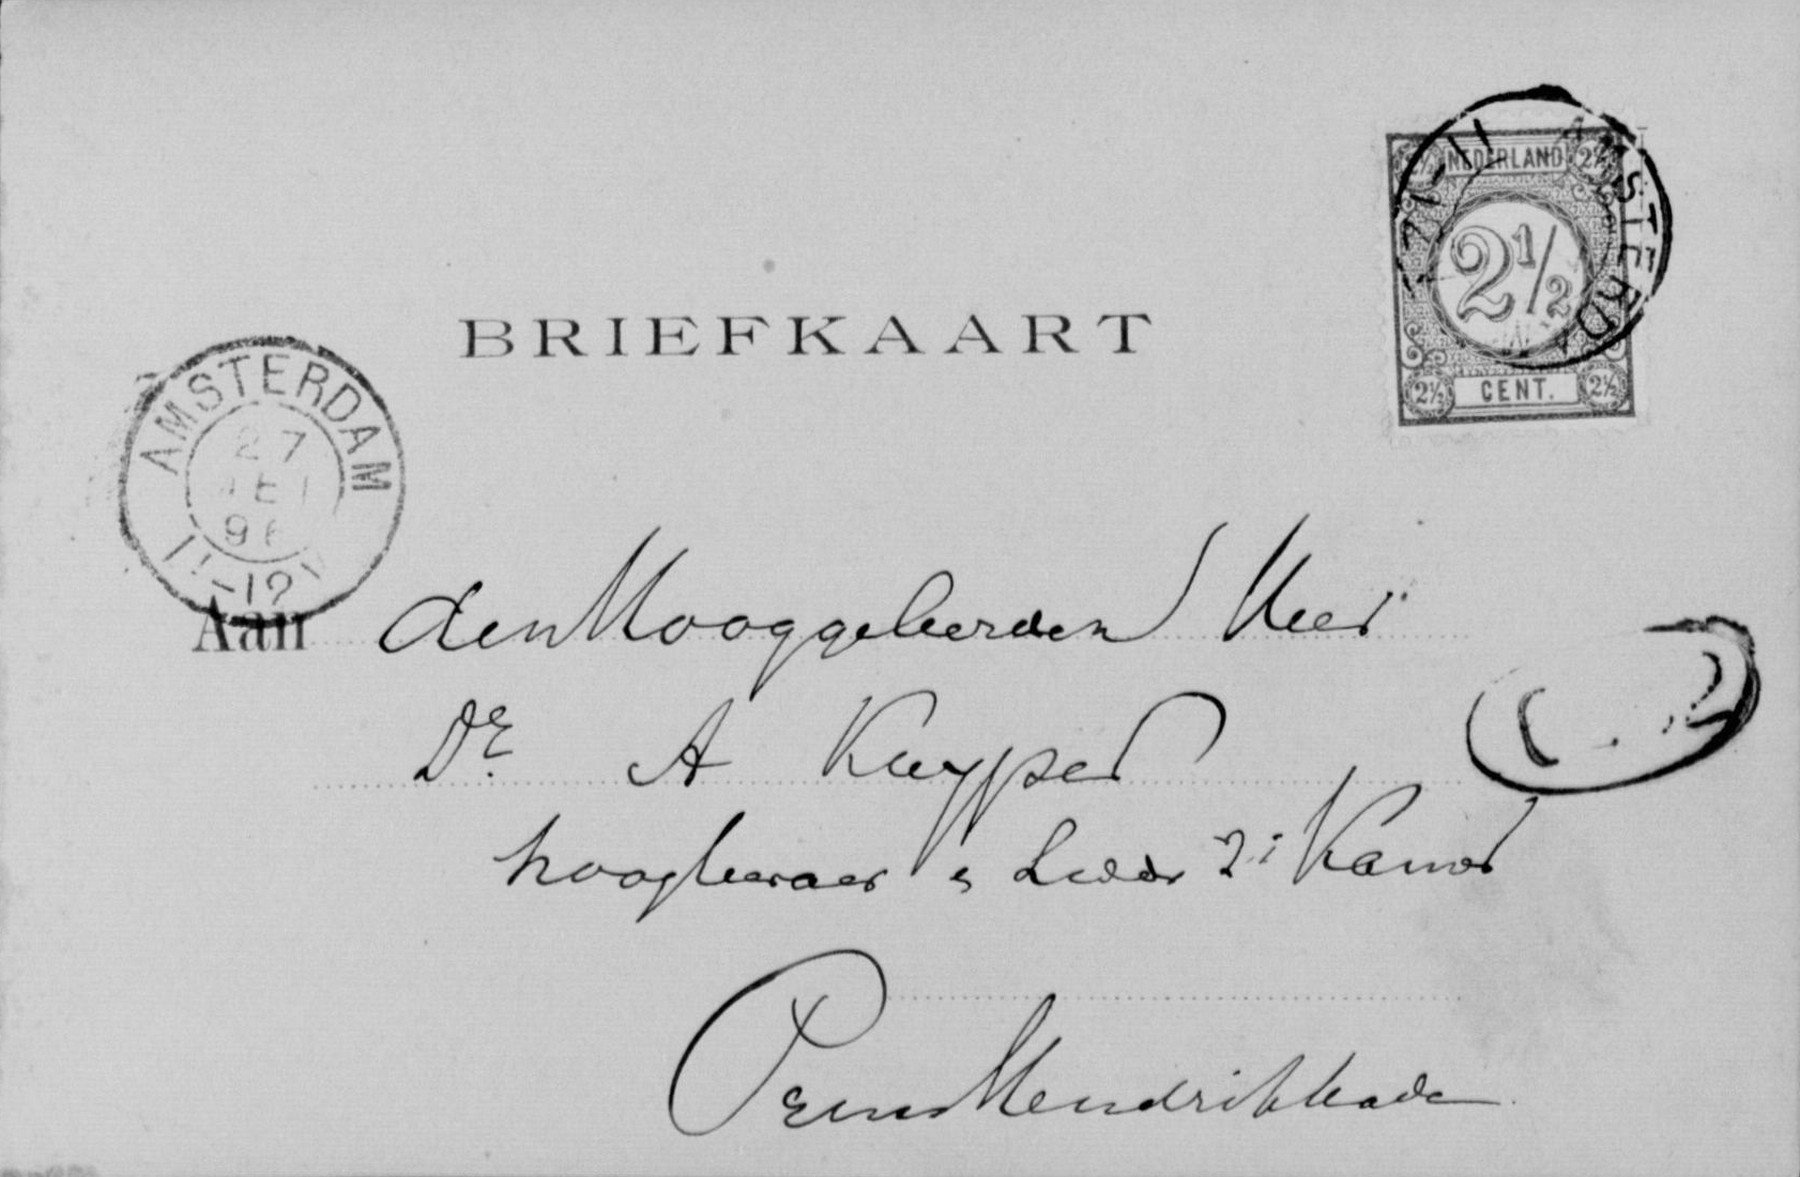 NEDERLAND
2½ 2½
2½
2½ CENT. 2½
AMSTERDAM
BRIEFKAART
AMSTERDAM
27
96
11-12
Aan den Hooggeleerden Heer
Dr. A Kuyper
hoogleeraar & Lid der 2e Kamer
Prins Hendrikkade